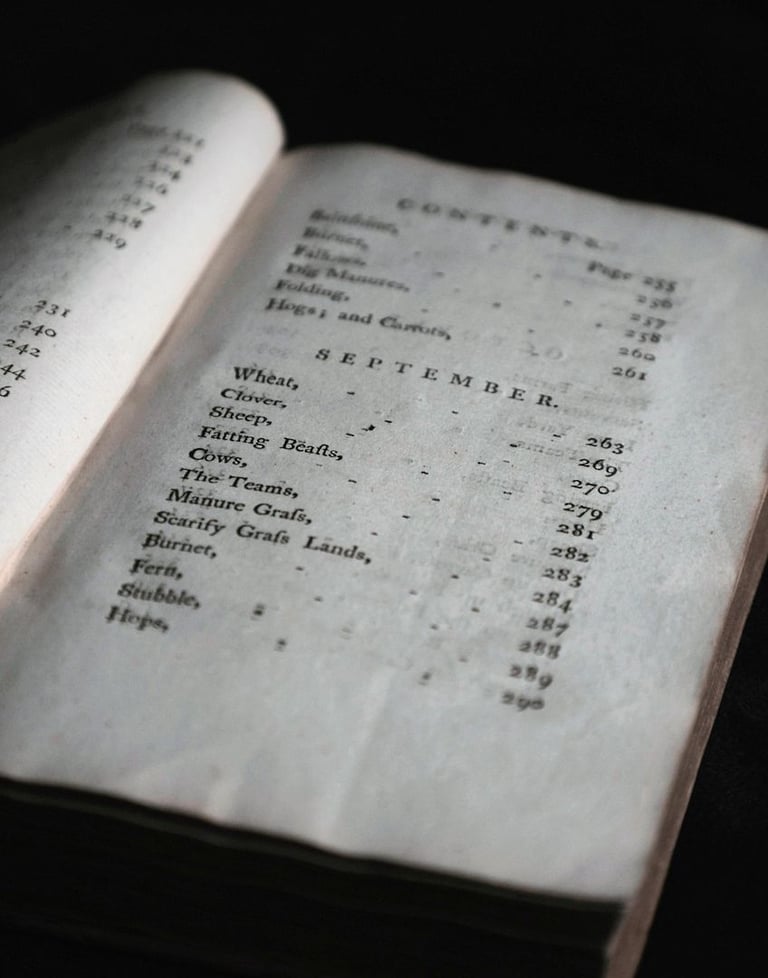 226
227
228
229
231
240
242
44
6
CONTENTS.
Page 255
Burnet, - - 256
Fallows, - - 257
Dig Manures, - 258
Folding, - - - 260
Hogs; and Carrots, 261
SEPTEMBER.
Wheat, - - - 263
Clover, - - 269
Sheep, - - - 270
Fatting Beaſts, - - 279
Cows, - - - 281
The Teams, - - 282
Manure Graſs, - - 283
Scarify Graſs Lands, - 284
Burnet, - - - 287
Fern, - - - 288
Stubble, - - - 289
Hops, - - 290